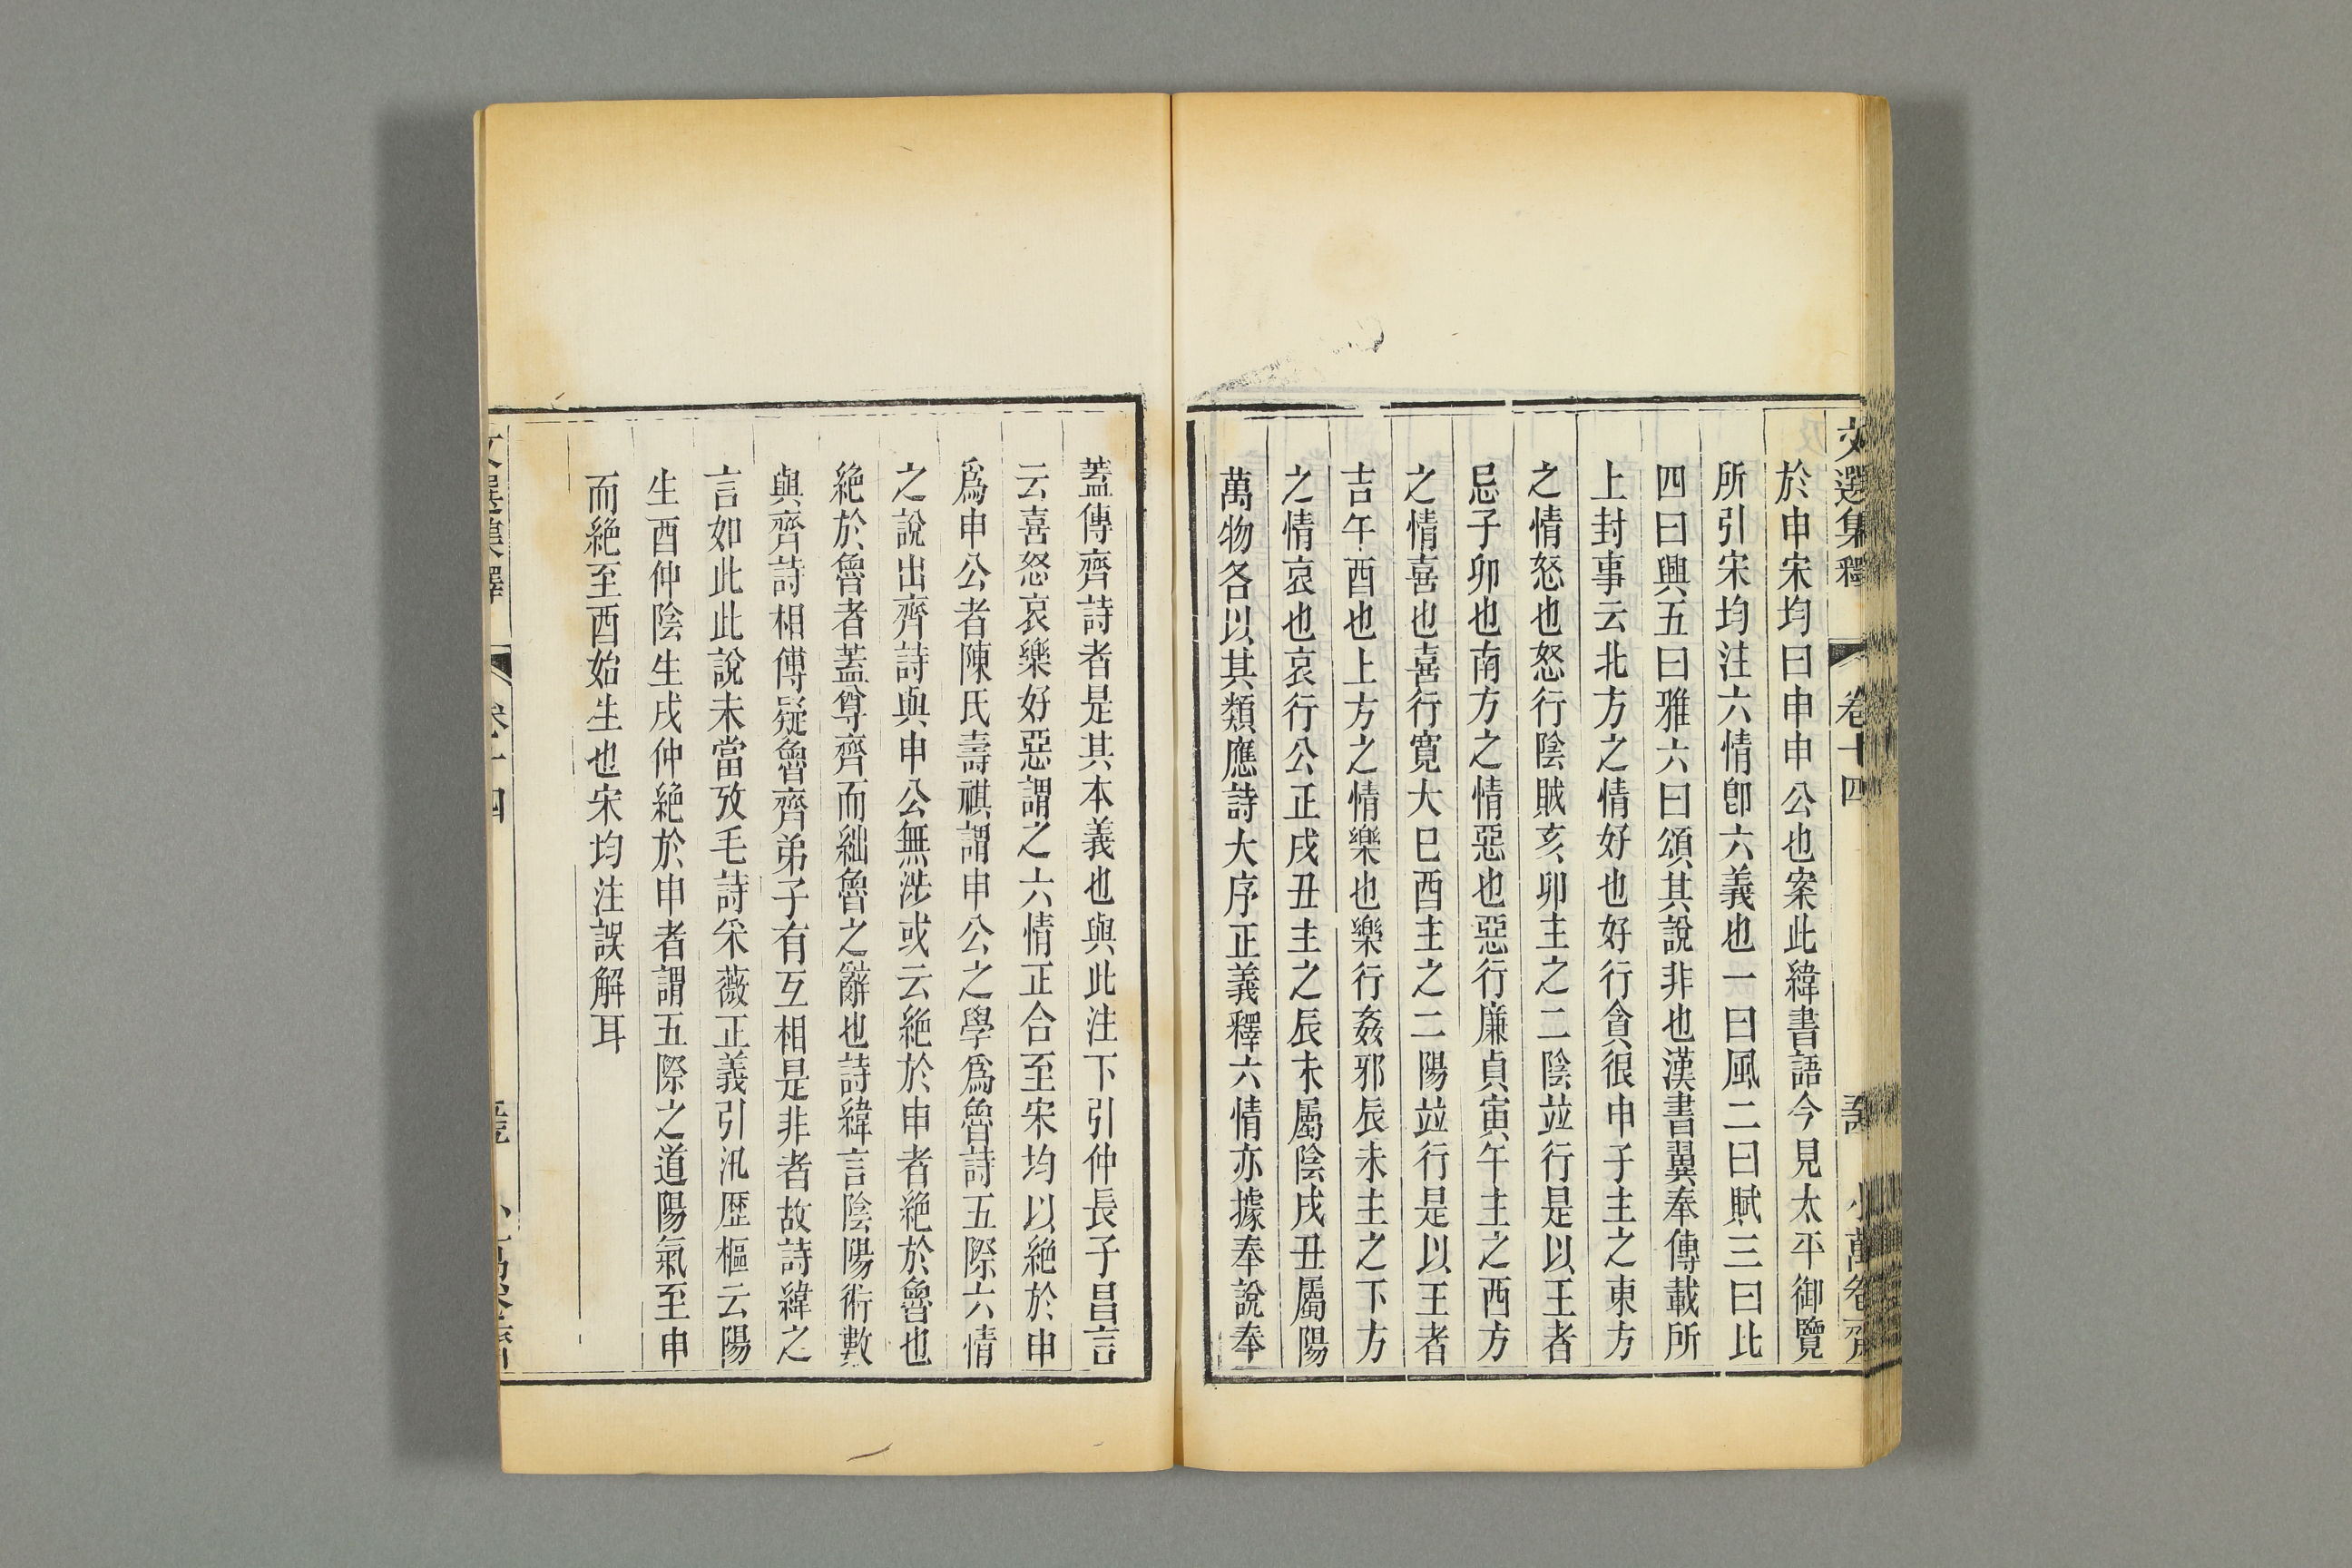 文選集釋 卷十四 小萬卷齋
於申宋均曰申申公也案此緯書語今見太平御覽
所引宋均注六情卽六義也一曰風二曰賦三曰比
四曰興五曰雅六曰頌其說非也漢書翼奉傳載所
上封事云北方之情好也好行貪很申子主之東方
之情怒也怒行陰賊亥卯主之二陰竝行是以王者
忌子卯也南方之情惡也惡行廉貞寅午主之西方
之情喜也喜行寛大巳酉主之二陽竝行是以王者
吉午酉也上方之情樂也樂行姦邪辰未主之下方
之情哀也哀行公正戌丑主之辰未屬陰戌丑屬陽
萬物各以其類應詩大序正義釋六情亦據奉說奉
蓋傳齊詩者是其本義也與此注下引仲長子昌言
云喜怒哀樂好惡謂之六情正合至宋均以絶於申
爲申公者陳氏壽祺謂申公之學爲魯詩五際六情
之說出齊詩與申公無涉或云絶於申者絶於魯也
絶於魯者蓋尊齊而絀魯之辭也詩緯言陰陽術數
與齊詩相傅疑魯齊弟子有互相是非者故詩緯之
言如此此說未當攷毛詩采薇正義引汎歴樞云陽
生酉仲陰生戌仲絶於申者謂五際之道陽氣至申
而絶至酉始生也宋均注誤解耳
文選集釋 卷十四